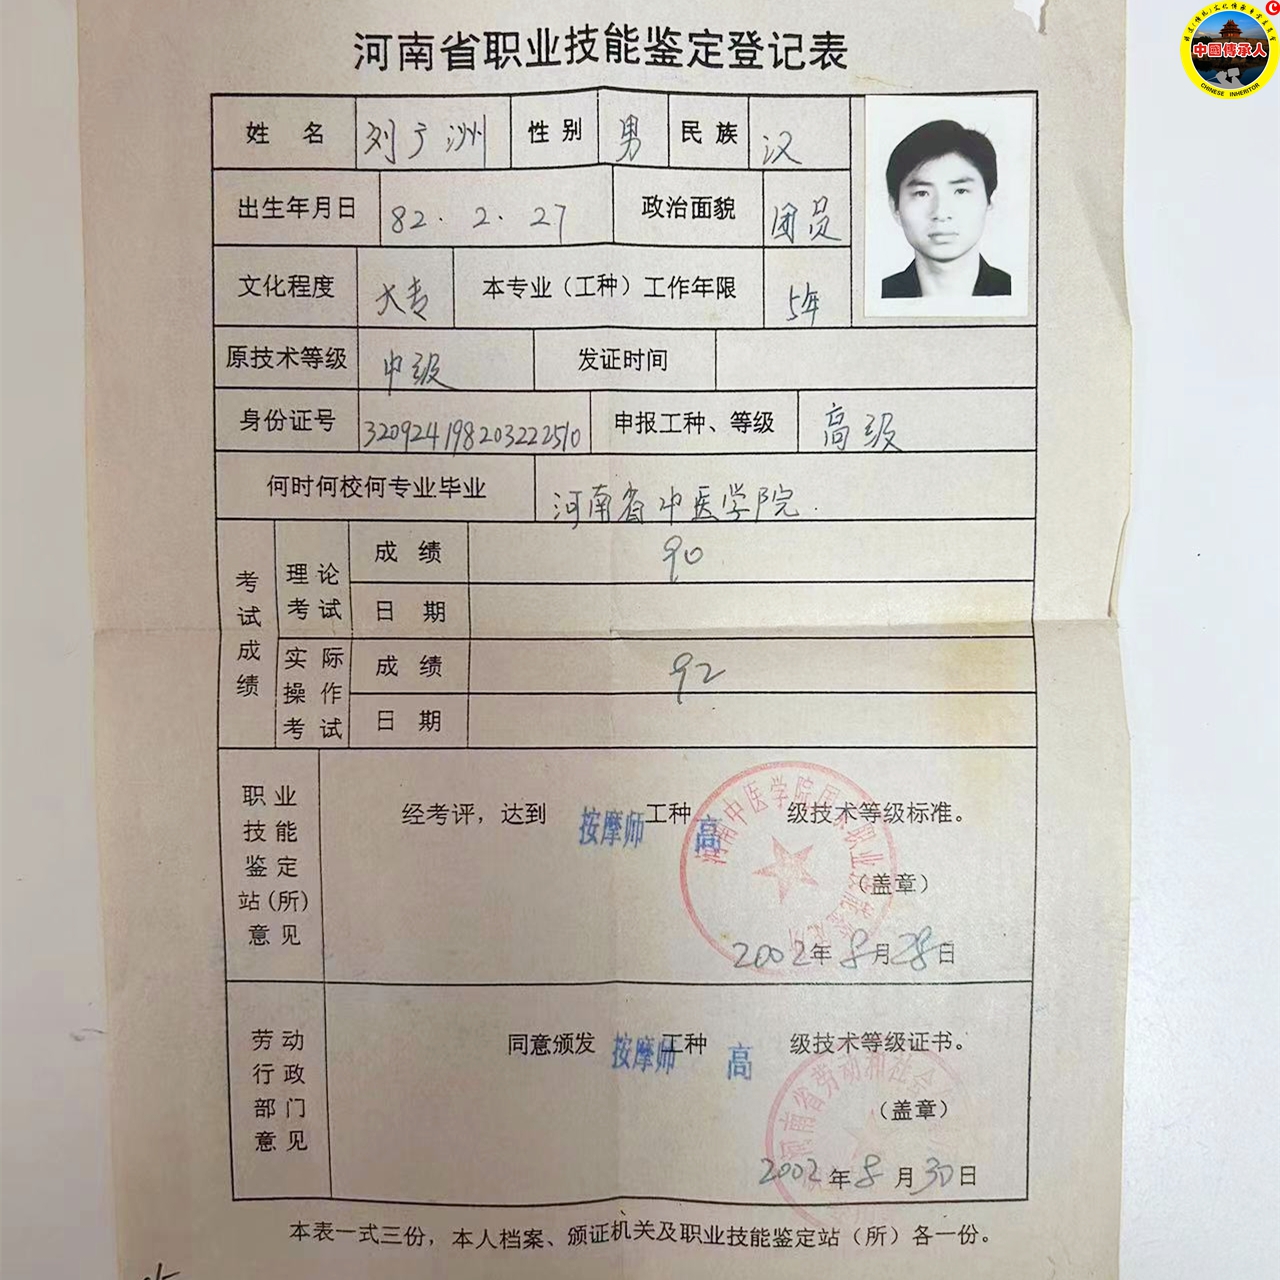 中國傳承人
CHINESE INHERITOR
河南省职业技能鉴定登记表
姓 名 刘广洲 性别 男 民族 汉
出生年月日 82.2.27 政治面貌 团员
文化程度 大专 本专业（工种）工作年限 5年
原技术等级 中级 发证时间
身份证号 320924198203222510 申报工种、等级 高级
何时何校何专业毕业 河南省中医学院.
考试成绩
理论考试 成绩 90
日期
实际操作考试 成绩 92
日期
职业技能鉴定站(所)意见
经考评，达到 按摩师 工种 高 级技术等级标准。
（盖章）
2002年8月28日
劳动行政部门意见
同意颁发 按摩师 工种 高 级技术等级证书。
河南省劳动和社会
（盖章）
2002年8月30日
本表一式三份，本人档案、颁证机关及职业技能鉴定站（所）各一份。